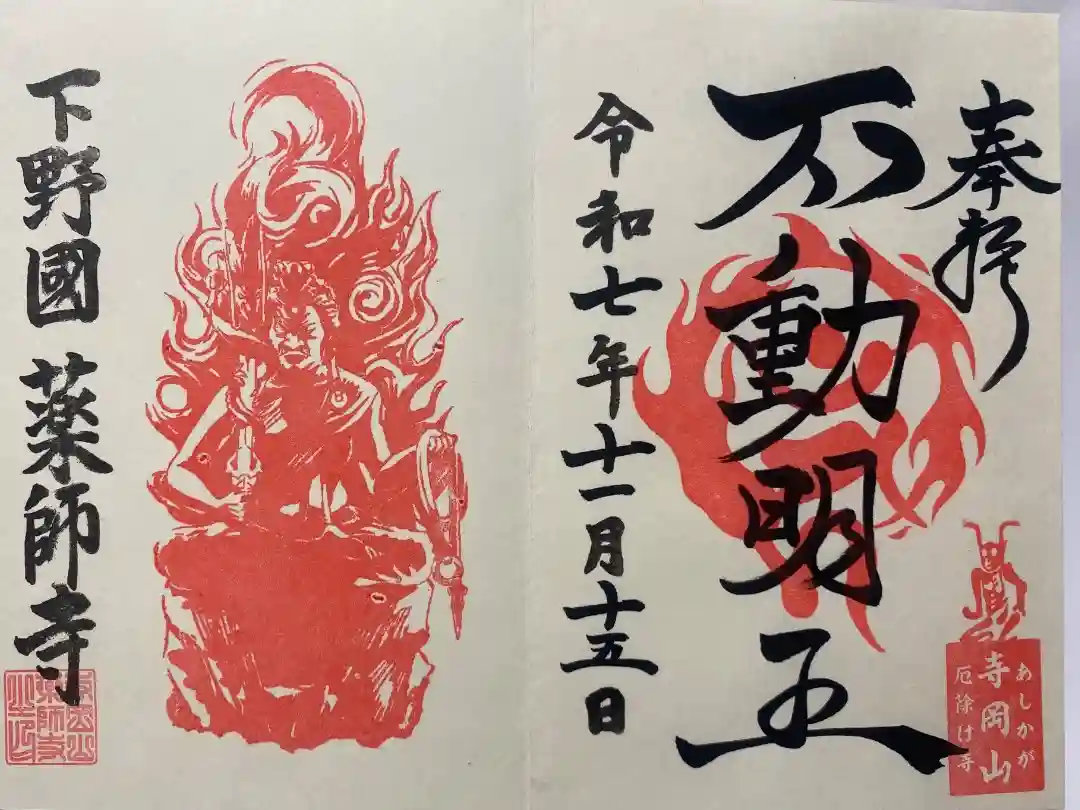 奉拝
不動明王
令和七年十一月十五日
あしかが
寺岡山
厄除け寺
下野國 薬師寺